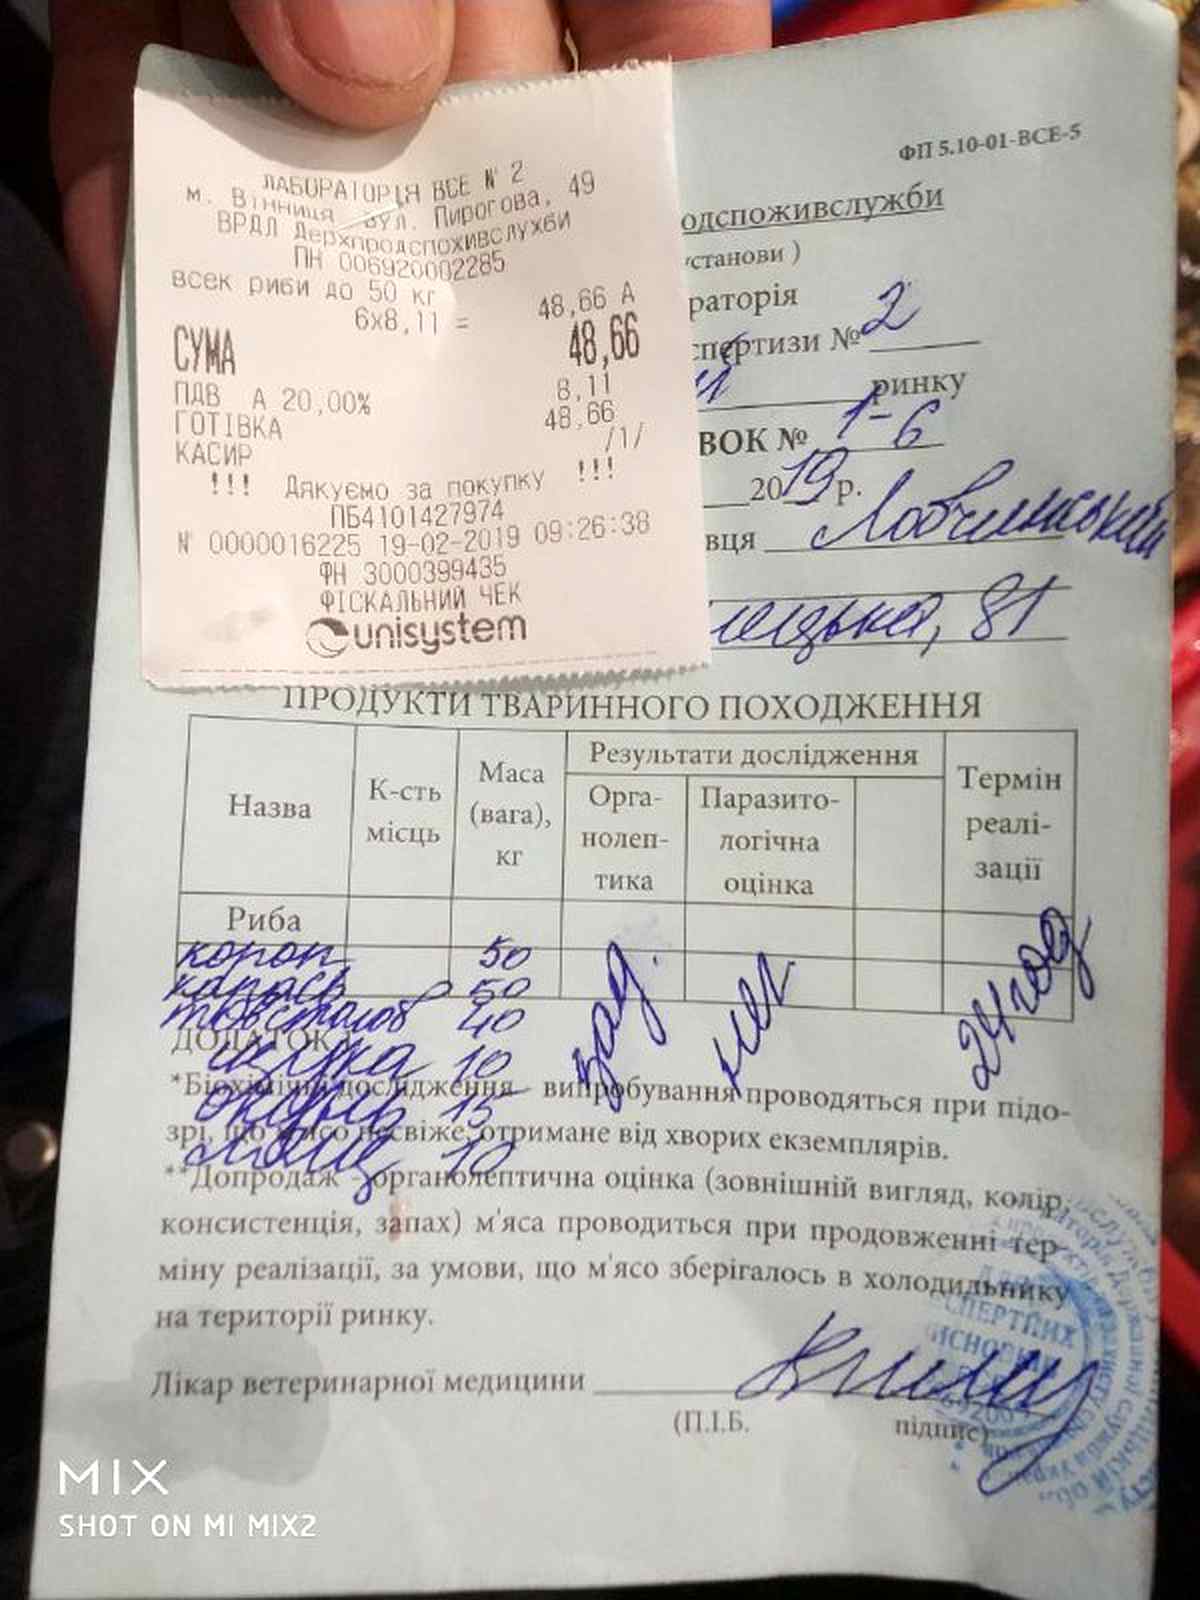 ЛАБОРАТОРІЯ ВСЕ № 2
м. Вінниця вул. Пирогова, 49
ВРДЛ Держпродспоживслужби
ПН 006920002285
всек риби до 50 кг
6х8,11 = 48,66 А
СУМА 48,66
ПДВ А 20,00% 8,11
ГОТІВКА 48,66
КАСИР /1/
!!! Дякуємо за покупку !!!
ПБ4101427974
№ 0000016225 19-02-2019 09:26:38
ФН 3000399435
ФІСКАЛЬНИЙ ЧЕК
unisystem
ФП 5.10-01-ВСЕ-5
одспоживслужби
установи )
раторія
спертизи № 2
ринку
ВОК № 1-6
2019 р.
вця Лобчинський
лецька, 81
ПРОДУКТИ ТВАРИННОГО ПОХОДЖЕННЯ
Назва
К-сть місць
Маса (вага), кг
Результати дослідження
Орга-
нолеп-
тика
Паразито-
логічна
оцінка
Термін
реалі-
зації
Риба
короп 50
карась 50
товстолоб 40
щука 10
окунь 15
лящ 10
зад.
нег.
24 год
ДОДАТОК
*Біохімічні дослідження - випробування проводяться при підо-
зрі, що м'ясо несвіже, отримане від хворих екземплярів.
**Допродаж - органолептична оцінка (зовнішній вигляд, колір,
консистенція, запах) м'яса проводиться при продовженні тер-
міну реалізації, за умови, що м'ясо зберігалось в холодильнику
на території ринку.
Лікар ветеринарної медицини
(П.І.Б. підпис)
MIX
SHOT ON MI MIX2